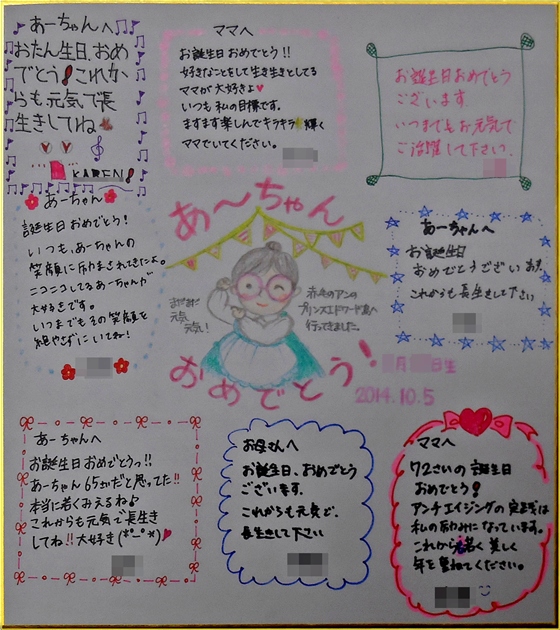 あーちゃんへ
おたん生日、おめ
でとう!これか
らも元気で長
生きしてね
KAREN!
ママへ
お誕生日おめでとう!!
好きなことをして生き生きとしてる
ママが大好きよ♥
いつも私の目標です。
ますます楽しんでキラキラ輝く
ママでいてください。
お誕生日おめでとう
ございます。
いつまでもお元気で
ご活躍して下さい。
あーちゃん
誕生日おめでとう!
いつもあーちゃんの
笑顔に励まされてきたよ。
ニコニコしてるあーちゃんが
大好きです。
いつまでもその笑顔を
絶やさずにいてね!
あ〜ちゃん
まだまだ
元気
元気!
赤毛のアンの
プリンスエドワード島へ
行ってきました。
おめでとう!
月 日生
2014.10.5
あーちゃんへ
お誕生日
おめでとうございます。
これからも長生きして下さい
あーちゃんへ
お誕生日おめでとうっ!!
あーちゃん65才だと思ってた!!
本当に若くみえるね♪
これからも元気で長生き
してね!!大好き(*^_^*)♥
お母さんへ
お誕生日、おめでとう
ございます。
これからも元気で、
長生きして下さい
ママへ
72さいの誕生日
おめでとう!
アンチエイジングの実践は
私の励みになっています。
これからも若く美しく
年を重ねてください。